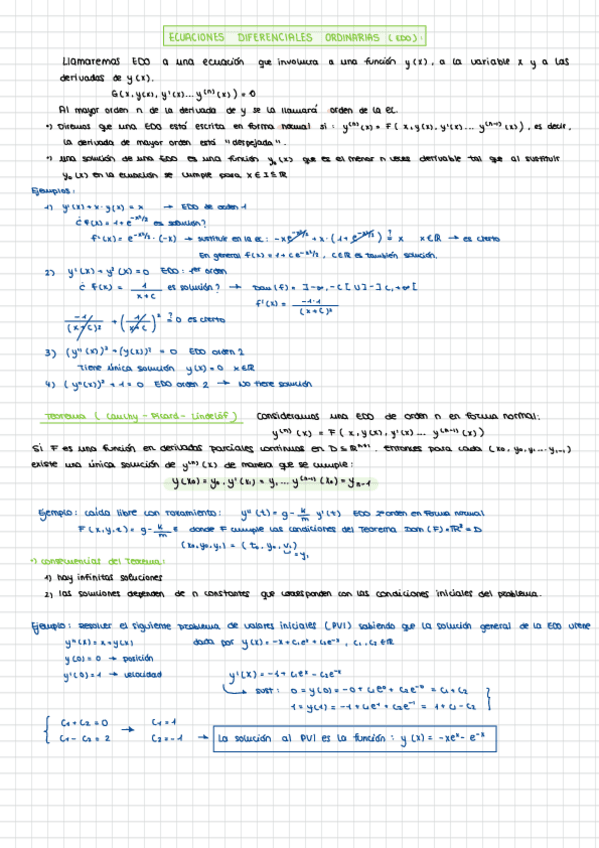 ECUACIONES DIFERENCIALES ORDINARIAS (EDO):
Llamaremos EDO a una ecuación que involucra a una función y(x), a la variable x y a las
derivadas de y(x).
G(x,y(x),y'(x)...y⁽ⁿ⁾(x)) = 0
Al mayor orden n de la derivada de y se la llamará orden de la ec.
•) Diremos que una EDO está escrita en forma normal si: y⁽ⁿ⁾(x) = F(x,y(x),y'(x)... y⁽ⁿ⁻¹⁾(x)), es decir,
la derivada de mayor orden está "despejada".
•) una solución de una EDO es una función y₀(x) que es al menor n veces derivable tal que al sustituir
y₀(x) en la ecuación se cumple para x∈I⊆ℝ
Ejemplos:
1) y'(x)+x·y(x) = x → EDO de orden 1
¿ f(x) = 1+e^(-x²/2) es solución?
f'(x) = e^(-x²/2)·(-x) → sustituir en la ec: -xe^(-x²/2) + x·(1+e^(-x²/2)) ?= x x∈ℝ → es cierto
En general f(x) = 1+ce^(-x²/2), c∈ℝ es también solución.
2) y'(x)+y²(x)=0 EDO: 1er orden
¿ f(x) = 1/(x+c) es solución? → Dom(f) = ]-∞,-c[ ∪ ]-c,+∞[
f'(x) = -1·1/(x+c)²
-1/(x+c)² + (1/(x+c))² ?= 0 es cierto
3) (y''(x))²+(y(x))² = 0 EDO orden 2
Tiene única solución y(x)=0 x∈ℝ
4) (y''(x))²+1=0 EDO orden 2 → No tiene solución
Teorema (Cauchy-Picard-Lindelöf) Consideramos una EDO de orden n en forma normal:
y⁽ⁿ⁾(x) = F(x,y(x),y'(x)... y⁽ⁿ⁻¹⁾(x))
Si F es una función en derivadas parciales continuas en D⊆ℝⁿ⁺¹. Entonces para cada (x₀,y₀,y₁...yₙ₋₁)
existe una única solución de y⁽ⁿ⁾(x) de manera que se cumple:
y(x₀)=y₀, y'(x₀)=y₁... y⁽ⁿ⁻¹⁾(x₀)=yₙ₋₁
Ejemplo: caída libre con rozamiento: y''(t) = g - k/m y'(t) EDO 2º orden en forma normal
F(x,y,z) = g - k/m z donde F cumple las condiciones del Teorema Dom(F)=ℝ³=D
(x₀,y₀,y₁) = (t₀,y₀,v₁)
=y₁
•) consecuencias del Teorema:
1) hay infinitas soluciones
2) las soluciones dependen de n constantes que corresponden con las condiciones iniciales del problema.
Ejemplo: Resolver el siguiente problema de valores iniciales (PVI) sabiendo que la solución general de la EDO viene
y''(x) = x+y(x) dada por y(x) = -x+c₁eˣ+c₂e⁻ˣ, c₁,c₂∈ℝ
y(0)=0 → posición
y'(0)=1 → velocidad y'(x) = -1+c₁eˣ-c₂e⁻ˣ
sust: 0=y(0) = -0+c₁e⁰+c₂e⁻⁰ = c₁+c₂
1=y(1) = -1+c₁e¹+c₂e⁻¹ = 1+c₁-c₂
{ c₁+c₂=0 → c₁=1
c₁-c₂=2 c₂=-1 → La solución al PVI es la función: y(x) = -xeˣ-e⁻ˣ